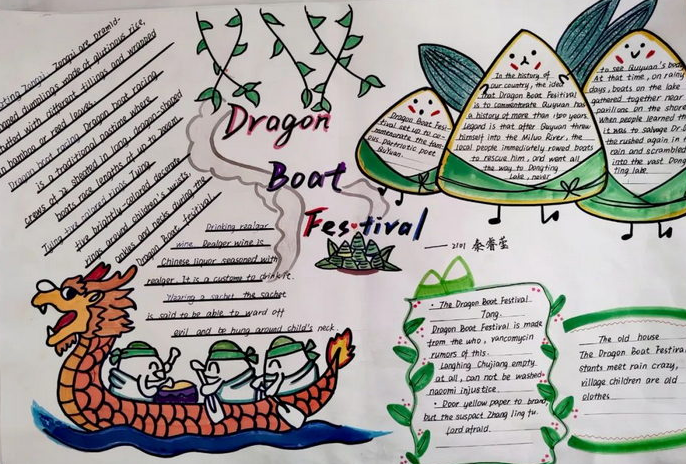 Eating Zongzi. Zongzi are pramid-
shaped dumplings made of glutinous rice,
stuffed with different fillings and wrapped
in bamboo or reed leaves.
Dragon boat racing. Dragon boat racing
is a traditional pastime where
crews of 22 sheeted in long dragon shaped
boats race lengths of up to 2000m
Tying five-colored lines. Tying
five brightly-colored decorated
rings around children's wrists,
ankles and necks during the
Dragon Boat festival
Dragon
Boat
Festival
2101 秦
Drinking realgar
wine. Realgar wine is
Chinese liquor seasoned with
realgar. It is a custome to drink it.
Wearing a sachet the sachet
is said to be able to ward off
evil and be hung around child's neck.
Dragon Boat Fes-
tival set up to co-
mmemorate the fam-
ous partriotic poet
QuYuan.
In the history of
our country, the idea
that Dragon Boat Festival
is to commemorate Quyuan has
a history of more than 1500 years.
Legend is that after Quyuan threw
himself into the Miluo River, the
local people immediately rowed boats
to rescue him, and went all
the way to Dongting
Lake, never
to see Quyuan's body
At that time, on rainy
days, boats on the lake
gathered together near
pavilions on the shore
When people learned th
it was to salvage Dr Q
the rushed again in t
rain and scrambled
into the vast Dong
ting lake.
· The Dragon Boat Festival
Tang
Dragon Boat Festival is made
from the who, vancomycin
rumors of this.
Laughing Chujiang empty
at all, can not be washed
naomi injustice.
· Door yellow paper to brand
but the suspect Zhang ling fu.
Lord afraid.
The old house
The Dragon Boat Festival
stants meet rain crazy,
village children are old
clothes